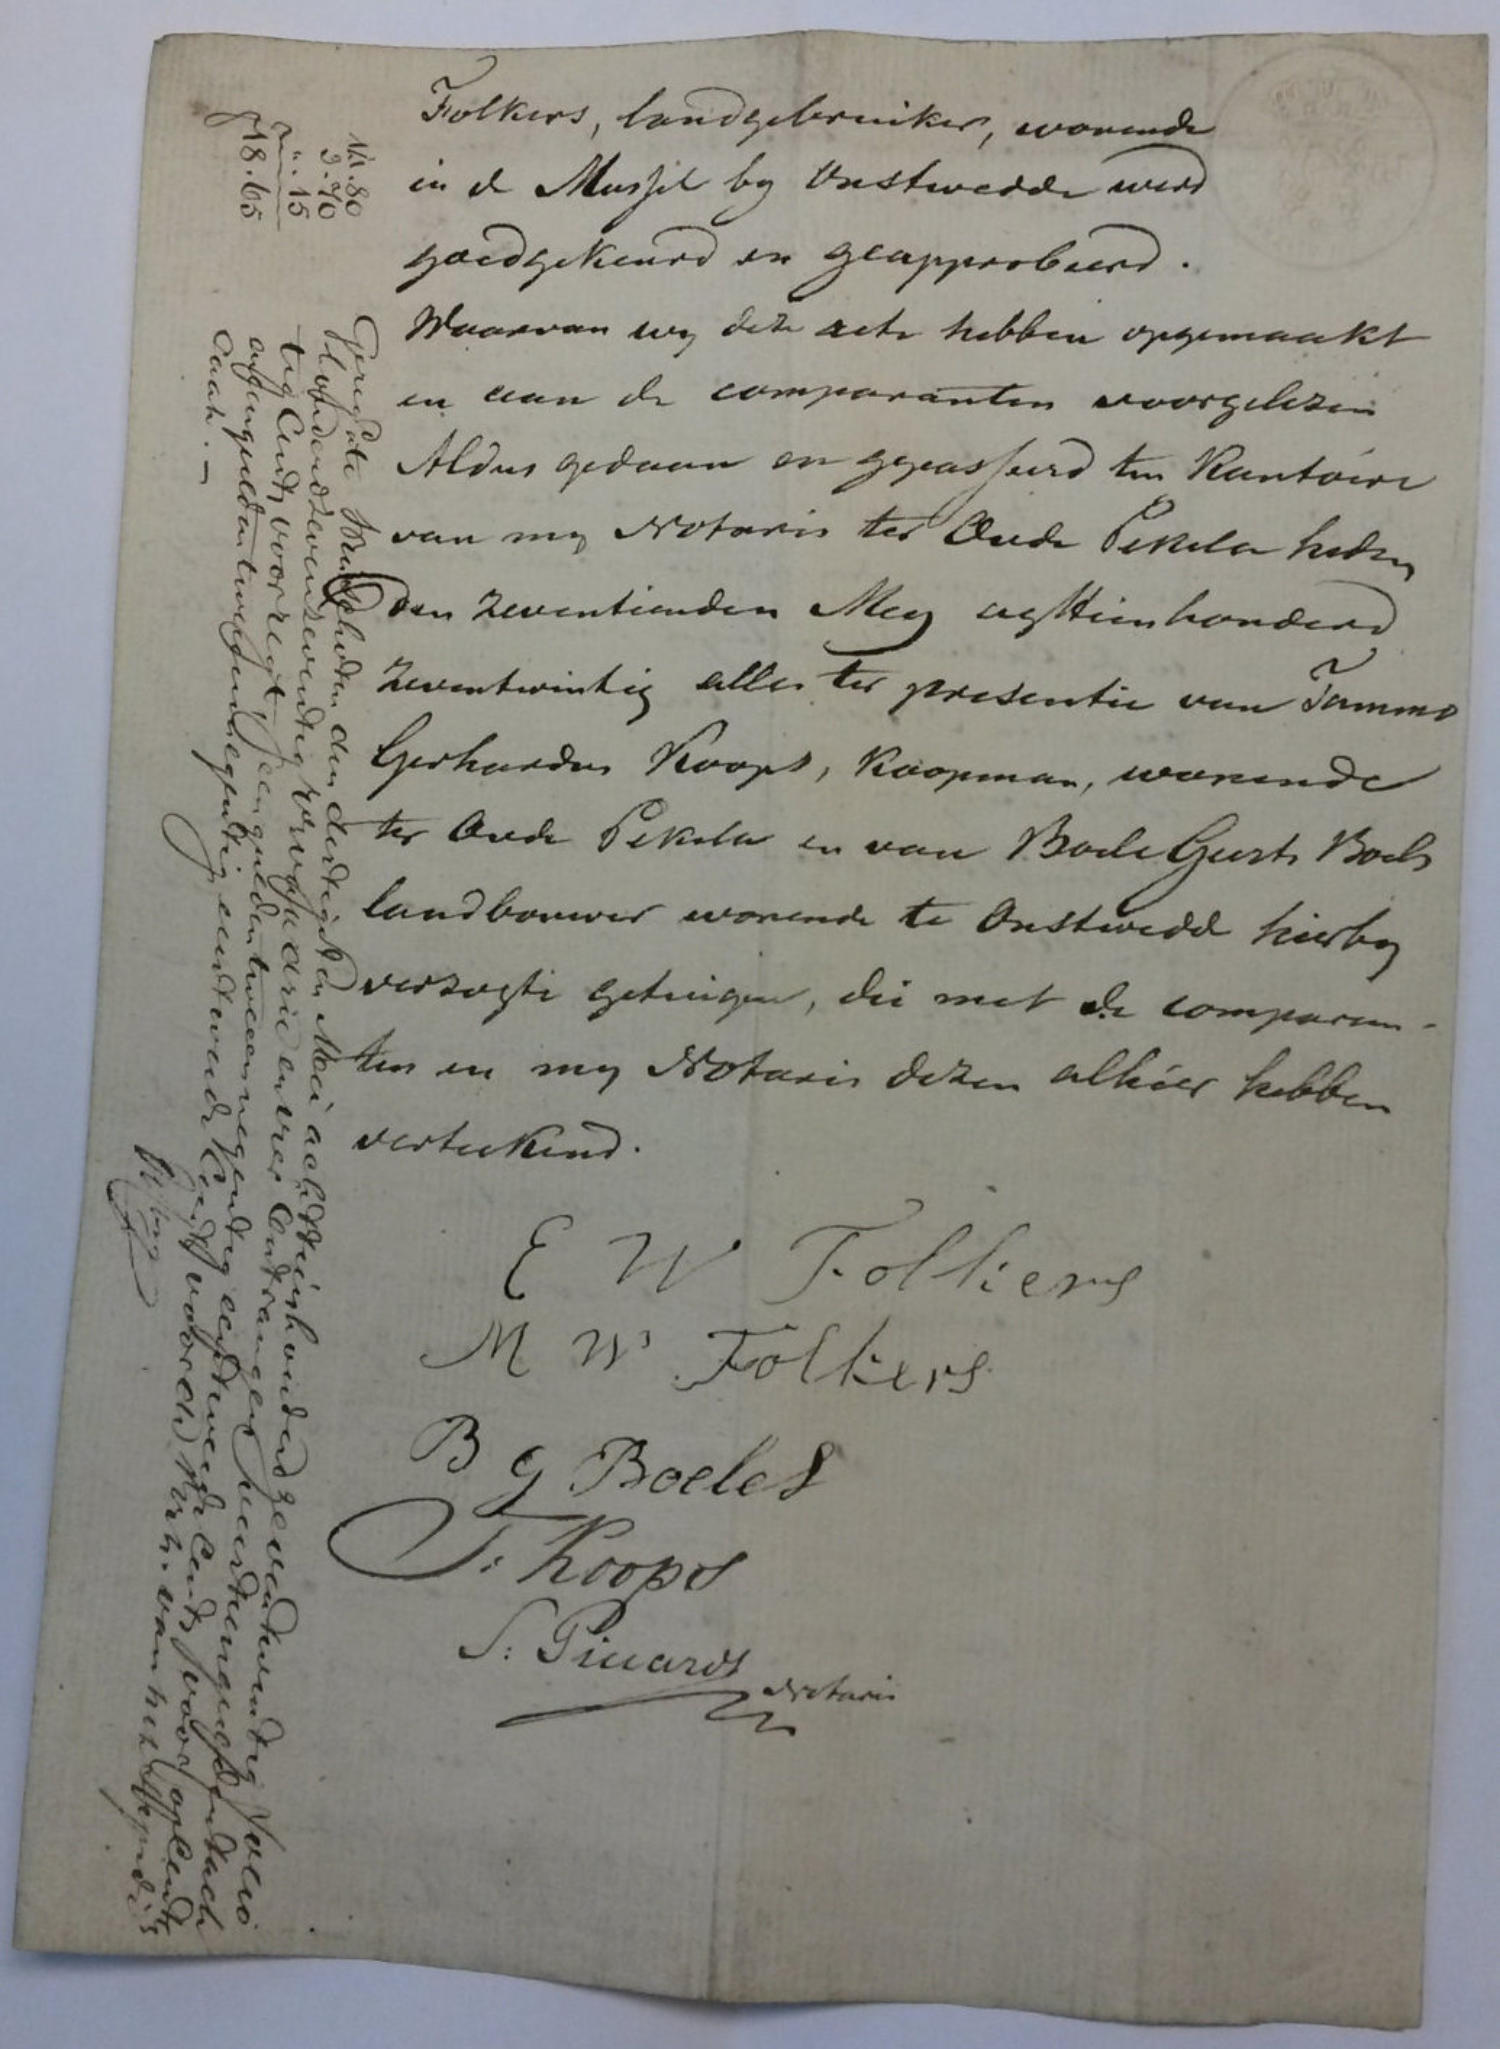 Folkers, landgebruiker, wonende
in de Mussel by Onstwedde werd
goedgekeurd en geapprobeerd.
Waarvan wy deze acte hebben opgemaakt
en aan de comparanten voorgelezen
Aldus gedaan en gepasseerd ten Kantoire
van my Notaris ter Oude Pekela heden
den zeventienden Mey agttienhonderd
zeventwintig alles ter presentie van Tammo
Gerhardus Koops, Koopman, wonende
ter Oude Pekela en van Boele Geerts Boels
landbouwer wonende te Onstwedde hierby
verzogte getuigen, die met de comparan-
ten en my Notaris dezen alhier hebben
verteekend.
E W Folkers
M W Folkers
B G Boeles
T: Koops
S: Piccardt
Notaris
14.80
3.70
".15
ƒ18.65
den dertigsten Mei achttienhonderd zevenentwintig folio
honderdzevenzeventig drie en vier Ontvangen
tig Cents voor regt een gulden tweeennegentig en tweede Cents voor opcents
en tweede Cents voor
van het